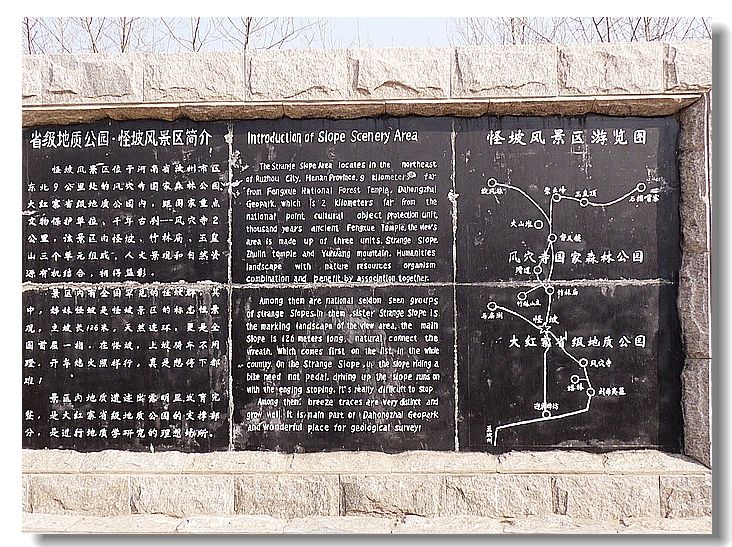 省级地质公园·怪坡风景区简介
怪坡风景区位于河南省汝州市区
东北9公里处的风穴寺国家森林公园
大红寨省级地质公园内，距国家重点
文物保护单位、千年古刹——风穴寺2
公里，该景区由怪坡、竹林庙、玉皇
山三个单元组成，人文景观和自然资
源有机结合，相得益彰。
景区内有全国罕见的怪坡群，其
观，主坡长126米，天然连环，更是全
理，开车熄火照样行，真是想停下都
难！
景区内地质遗迹断露明显发育完
整，是大红寨省级地质公园的支撑部
分，是进行地质学研究的理想场所。
Introduction of Slope Scenery Area
The Strange Slope Area locates in the northeast
of Ruzhou City, Henan Province, 9 kilometers far
from Fengxue National Forest Temple, Dahongzhai
Geopark, which is 2 kilometers far from the
national point cultural object protection unit,
thousand years ancient Fengxue Temple, the view's
area is made up of three units, Strange Slope
Zhulin temple and Yuhuang mountain. Humanities
landscape with nature resources organism
combination and benefit by association together.
Among them are national seldom seen groups
of strange Slopes.In them ,sister Strange Slope is
the marking landscape of the view area, the main
Slope is 126 meters long, natural connect the
wreath, which comes first on the list in the whole
country. On the Strange Slope ,up the slope riding a
bike need not pedal, driving up the slope runs on
with the enging stoping. It's really difficult to stop
Among them, breeze traces are very distinct and
grow well. It is main part of Dahongzhai Geopark
and wonderful place for geological survey!
怪坡风景区游览图
玉皇顶
石榴嘴寨
大山堆
风穴寺国家森林公园
竹林庙
怪坡
大红寨省级地质公园
风穴寺
塔林